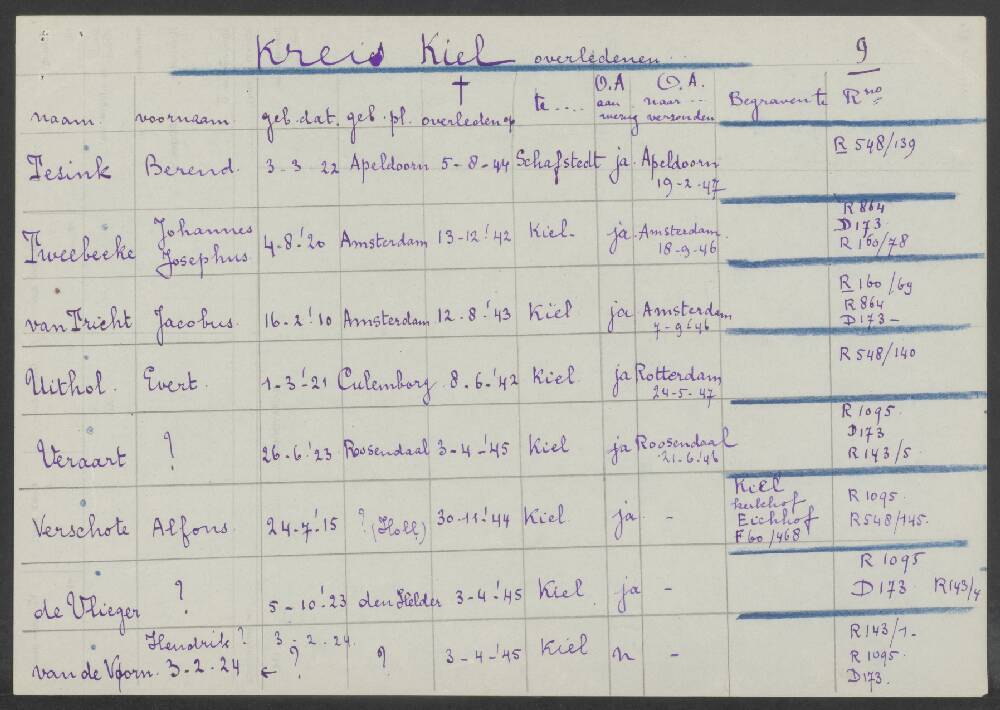 Kreis Kiel overledenen 9
naam voornaam geb. dat. geb. pl. † overleden op te .... O.A aanwezig O.A. naar ... verzonden Begraven te R no
Tesink Berend. 3-3 22 Apeldoorn 5-8-44 Schafstedt ja Apeldoorn R 548/139
19-2-47
Johannes R 864
Tweebeeke Josephus 4-8-'20 Amsterdam 13-12-'42 Kiel- ja Amsterdam D173
18-9-46 R 160/78
R 160/69
van Tricht Jacobus. 16-2-'10 Amsterdam 12-8-'43 Kiel ja Amsterdam R 864
7-9-'46 D173-
Uithol. Evert. 1-3-'21 Culemborg 8-6-'42 Kiel ja Rotterdam R 548/140
24-5-47
R 1095
Veraart ? 26-6-'23 Roosendaal 3-4-'45 Kiel ja Roosendaal D173
21-6-'46 R 143/5
Kiel
kerkhof R 1095
Verschote Alfons. 24-7-'15 ? (Holl) 30-11-'44 Kiel ja - Eichhof R 548/145.
F 60/468
R 1095
de Vlieger ? 5-10-'23 den Helder 3-4-'45 Kiel ja - D173 R143/4
Hendrik? 3-2-24. R143/1-
van de Voorn. 3-2-24 ← ? ? 3-4-'45 Kiel n - R 1095
D173.